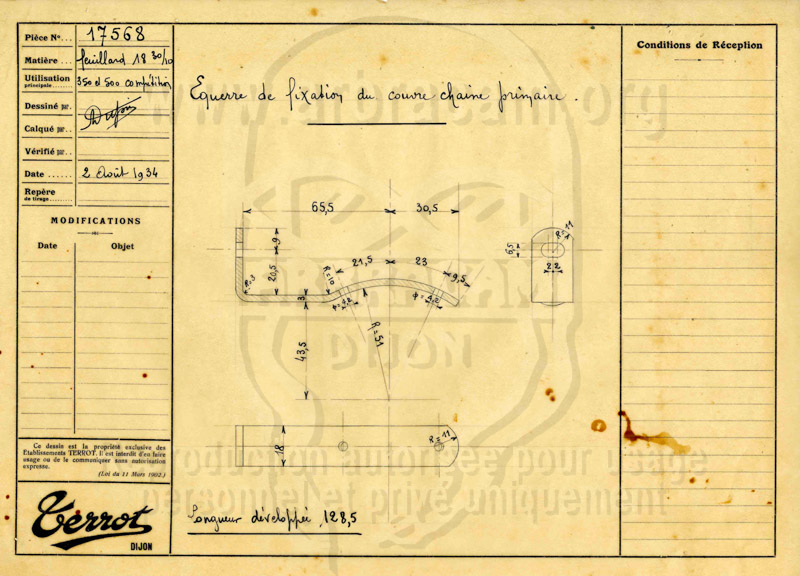 Pièce No... 17568
Matière... feuillard 18 30/10
Utilisation principale... 350 et 500 compétition
Dessiné par.
Calqué par..
Vérifié par..
Date ...... 2 Août 1934
Repère
du tirage........
MODIFICATIONS
Date Objet
Ce dessin est la propriété exclusive des
Etablissements TERROT. Il est interdit d'en faire
usage ou de le communiquer sans autorisation
expresse.
(Loi du 11 Mars 1902.)
Terrot
DIJON
Equerre de fixation du couvre chaine primaire.
65,5 30,5
9
20,5
R=3
R=10
21,5 23
9,5
3
φ=4,2 φ=4,2
43,5
R=51
R=11
6,5
2 2
18
R=11
Longueur développée 128,5
Conditions de Réception
www.arbracam.org
ARBRACAM
DIJON
reproduction autorisée pour usage
personnel et privé uniquement